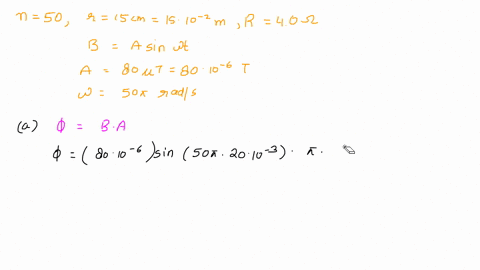 n=50, r = 15cm = 15·10⁻² m, R = 4.0Ω
B = A sin ωt
A = 80 μT = 80·10⁻⁶ T
ω = 50π rad/s
(a) ϕ = B·A
ϕ = (80·10⁻⁶) sin (50π·20·10⁻³)· π·